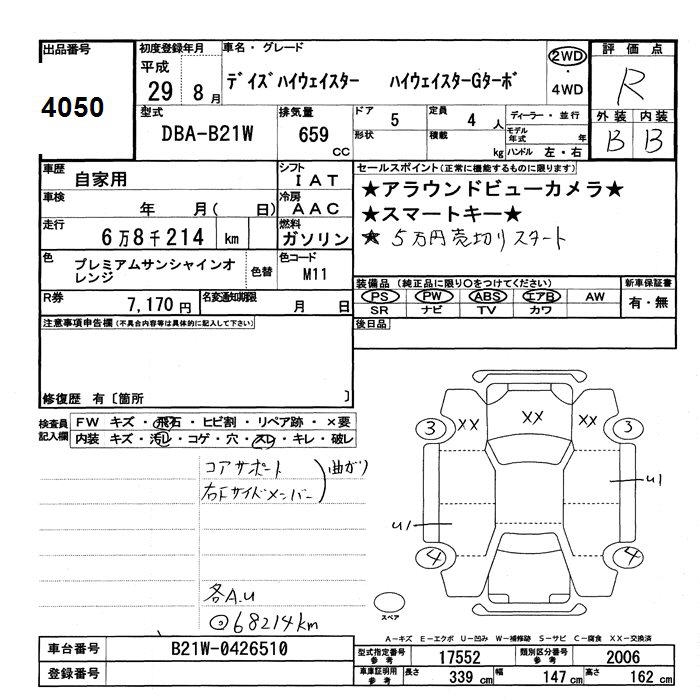 出品番号
4050
初度登録年月
平成
29 8 月
車名・グレード
デイズハイウェイスター ハイウェイスターGターボ
2WD
・
4WD
評価点
R
外装 内装
B B
型式
DBA-B21W
排気量
659
cc
ドア 5
定員 4 人
形状
積載 kg
ディーラー・並行
モデル年式 年
ハンドル 左・右
車歴
自家用
シフト
IAT
車検
年 月( 日)
冷房
AAC
走行
6万8千214 km
燃料
ガソリン
色
プレミアムサンシャインオレンジ
色替
色コード
M11
R券
7,170円
名変通知期限
月 日
セールスポイント(正常に機能するものに限ります)
★アラウンドビューカメラ★
★スマートキー★
★ 5万円売切りスタート
装備品(純正品に限り○をつけてください)
PS PW ABS エアB AW
SR ナビ TV カワ
新車保証書
有・無
後日品
注意事項申告欄(不具合内容等は具体的に記入して下さい)
修復歴 有〔箇所 〕
検査員記入欄
FW キズ・飛石・ヒビ割・リペア跡・×要
内装 キズ・汚レ・コゲ・穴・スレ・キレ・破レ
コアサポート
右下サイドメンバー
曲がり
各A.U
◎68214km
3 XX XX XX 3
U1
U1
4 4
スペア
A−キズ E−エクボ U−凹み W−補修跡 S−サビ C−腐食 XX−交換済
車台番号
B21W-0426510
登録番号
型式指定番号
参考
17552
類別区分番号
参考
2006
車庫証明用
参考
長さ 339 cm
幅 147 cm
高さ 162 cm